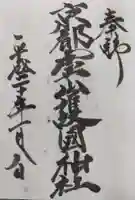 奉拝
京都霊山護國神社
平成二十年一月一日